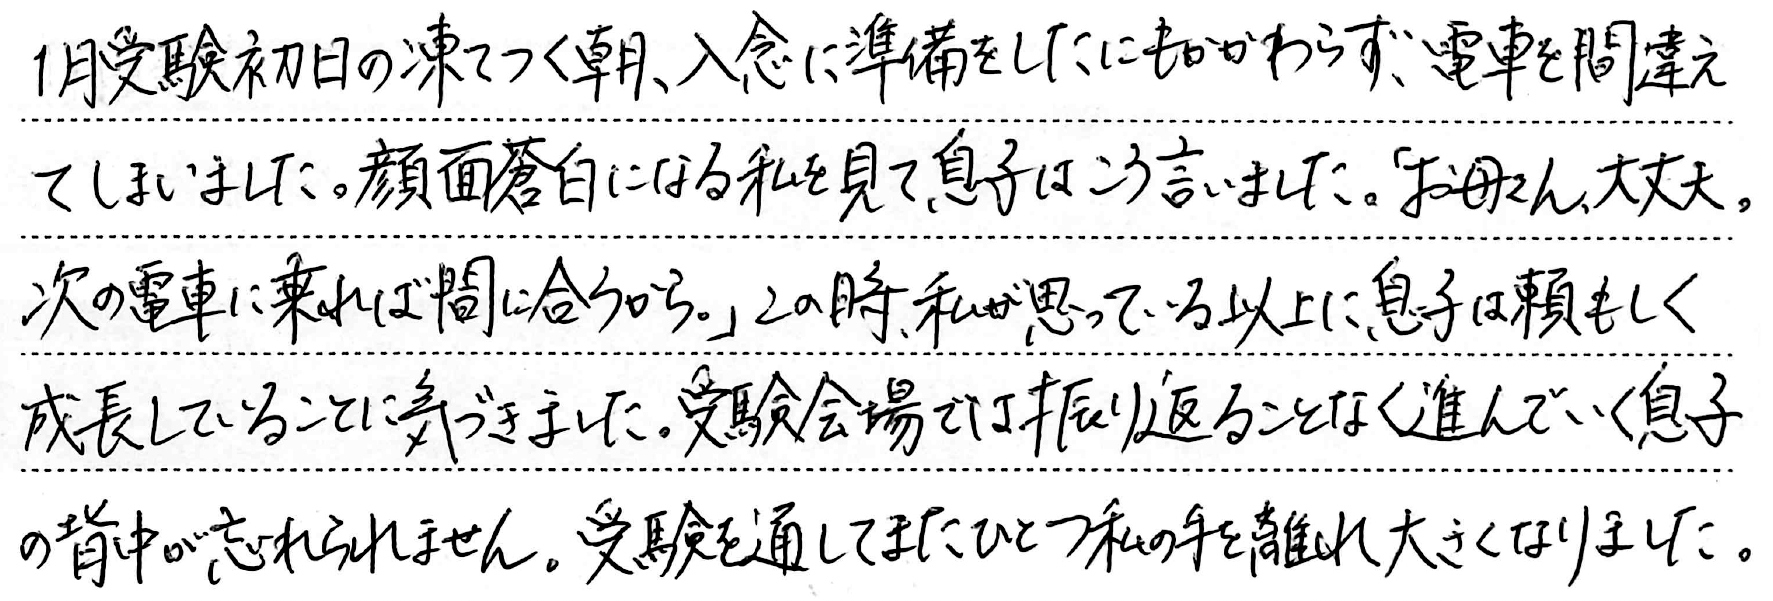 1月受験初日の凍てつく朝、入念に準備をしたにもかかわらず、電車を間違え
てしまいました。顔面蒼白になる私を見て、息子はこう言いました。「お母さん、大丈夫。
次の電車に乗れば間に合うから。」この時、私が思っている以上に、息子は頼もしく
成長していることに気づきました。受験会場では振り返ることなく進んでいく息子
の背中が忘れられません。受験を通してまたひとつ私の手を離れ大きくなりました。